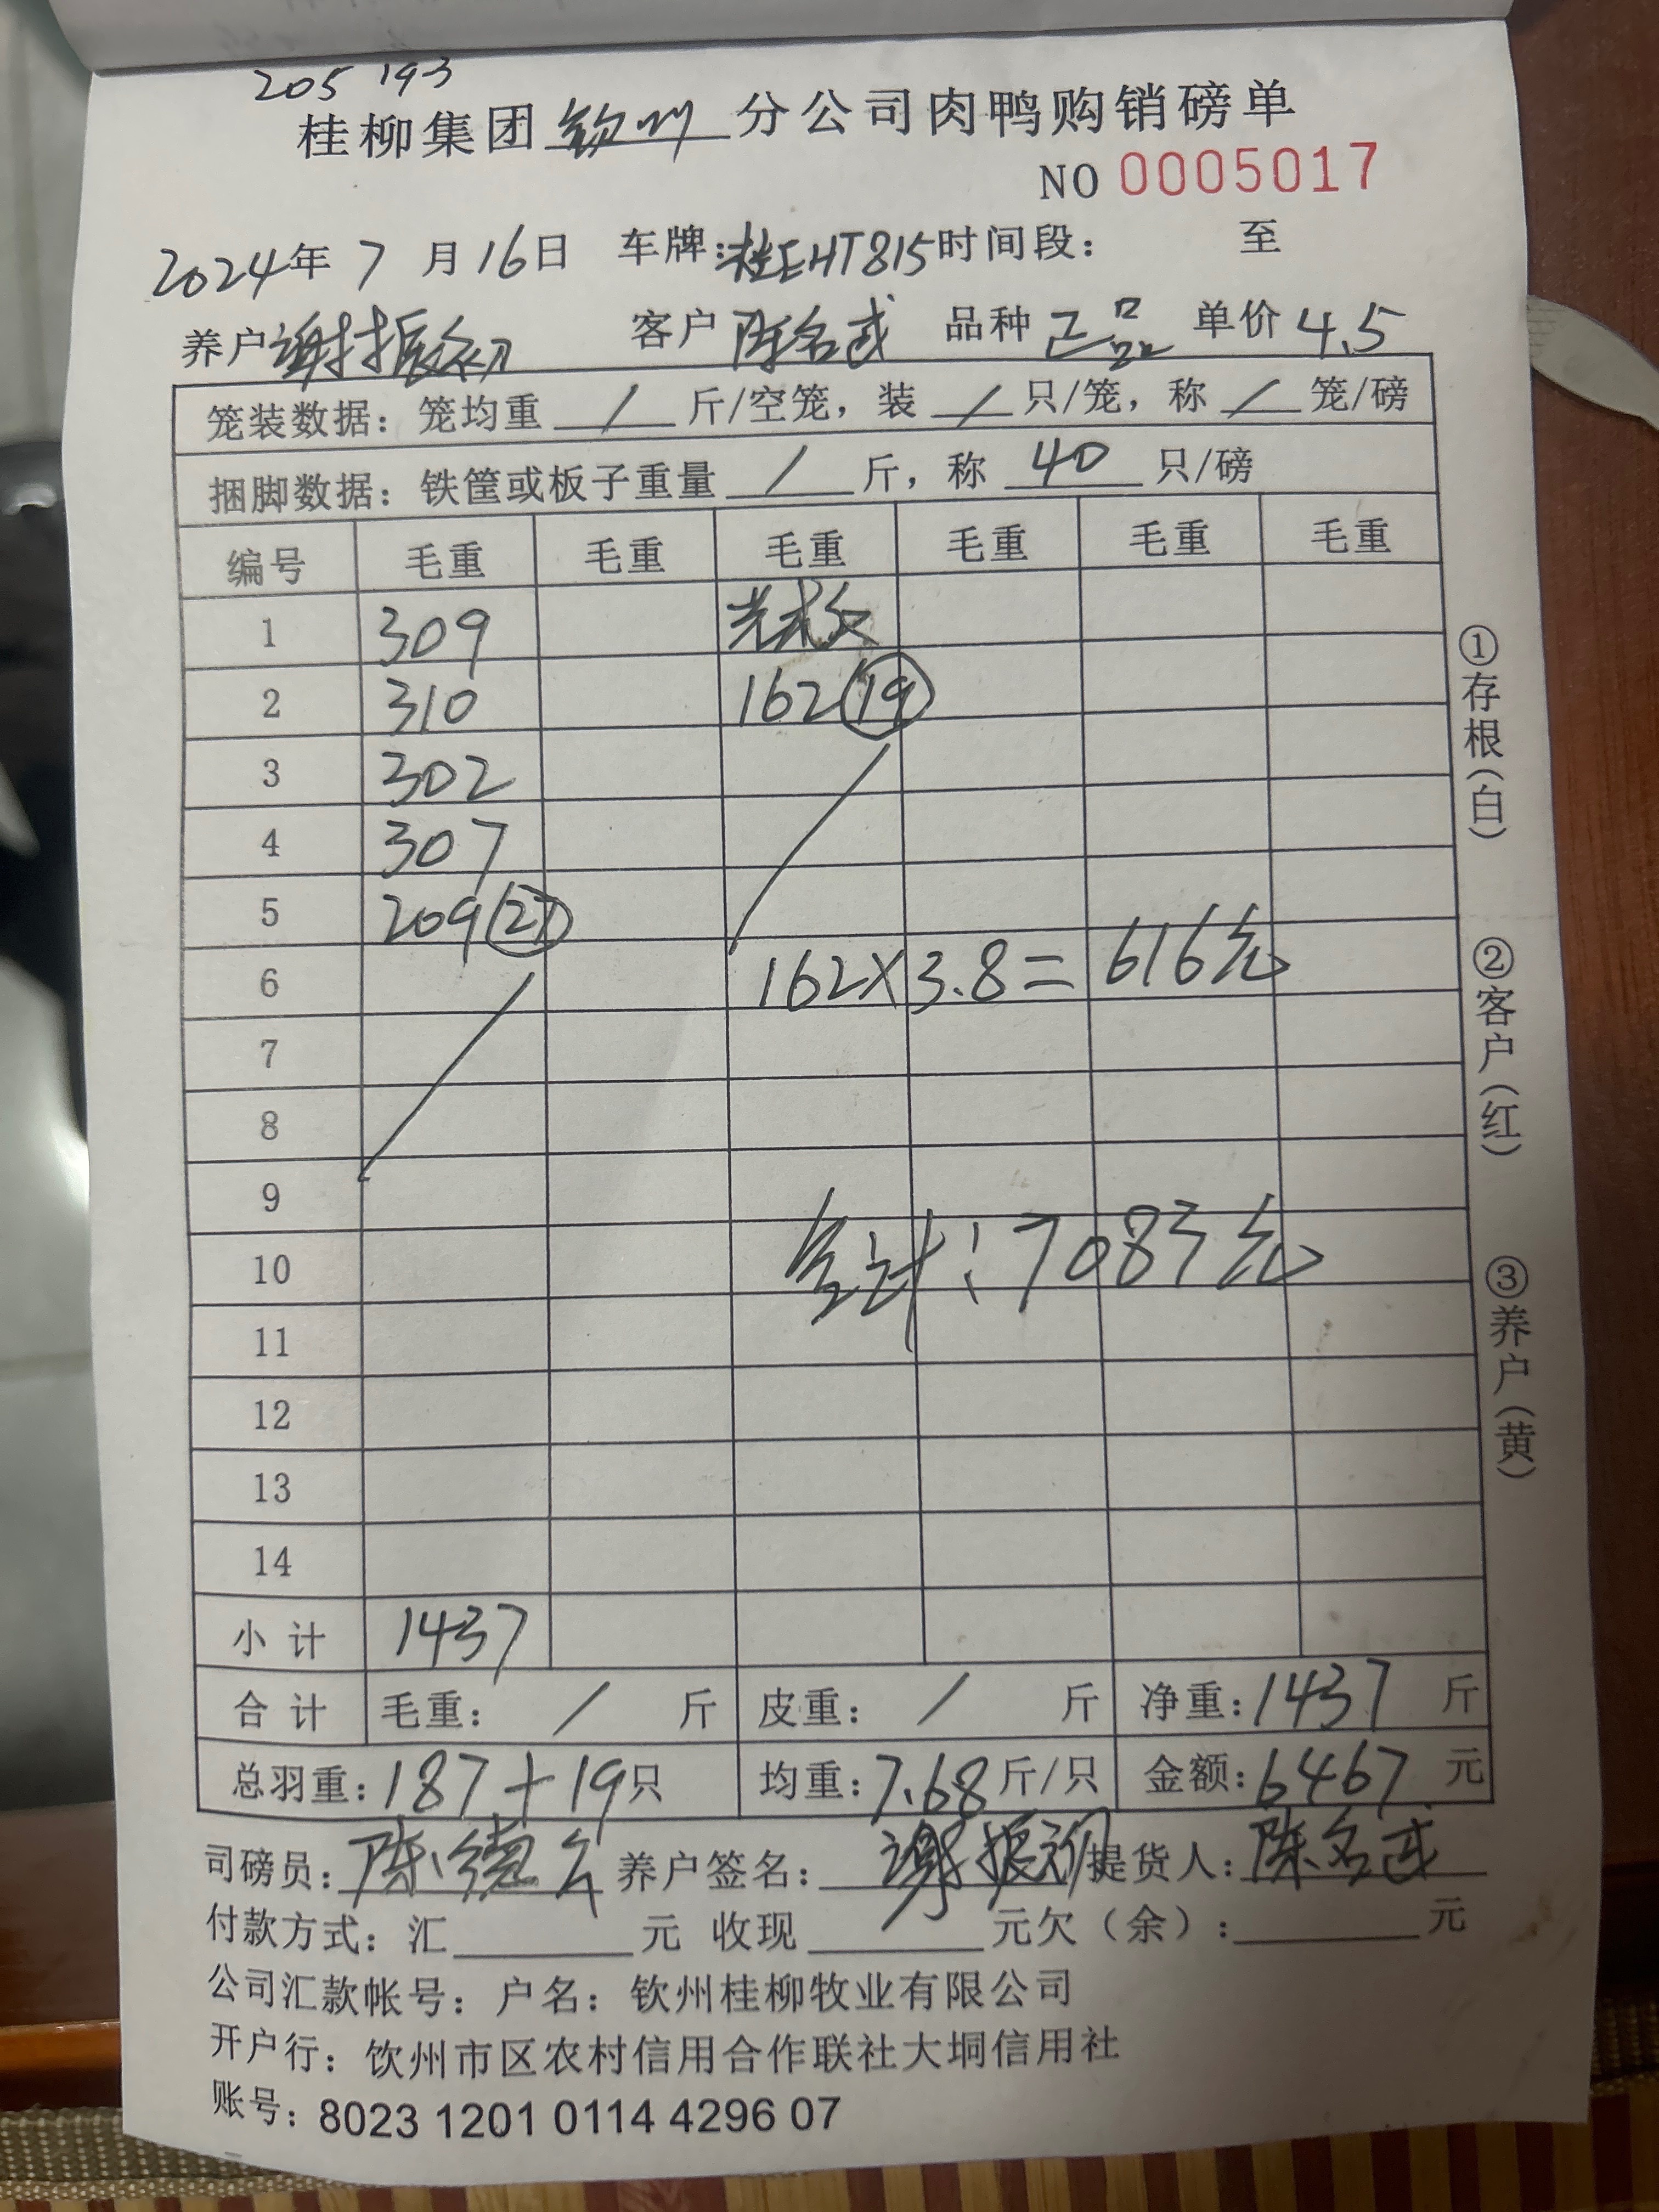 205 193
桂柳集团钦州分公司肉鸭购销磅单
NO 0005017
2024年7月16日 车牌:桂EHT815时间段: 至
养户谢振初 客户陈名武 品种正品 单价4.5
笼装数据: 笼均重 / 斤/空笼, 装 / 只/笼, 称 / 笼/磅
捆脚数据: 铁筐或板子重量 / 斤, 称 40 只/磅
编号 毛重 毛重 毛重 毛重 毛重 毛重
1 309
2 310 162 19
3 302
4 307
5 209 27
6 162×3.8= 616元
7
8
9
10 合计:7083元
11
12
13
14
小计 1437
合计 毛重: / 斤 皮重: / 斤 净重:1437 斤
总羽重:187+19只 均重:7.68斤/只 金额:6467 元
司磅员:陈德 养户签名: 谢振初 提货人:陈名武
付款方式: 汇 元 收现 元欠(余): 元
公司汇款帐号: 户名: 钦州桂柳牧业有限公司
开户行: 钦州市区农村信用合作联社大垌信用社
账号: 8023 1201 0114 4296 07
①存根(白)
②客户(红)
③养户(黄)